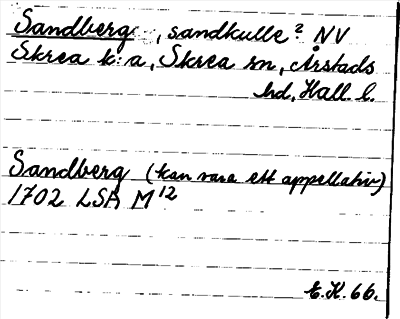 Sandberg, sandkulle? NV
Skrea k:a, Skrea sn, Årstads
hd, Hall. l.
Sandberg (kan vara ett appellativ)
1702 LSA M12
E.K. 66.